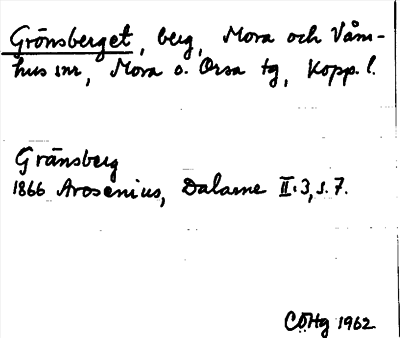 Grönsberget, berg, Mora och Våm-
hus snr, Mora o. Orsa tg, Kopp. l.
Gränsberg
1866 Arosenius, Dalarne II:3, s. 7.
CÖHg 1962